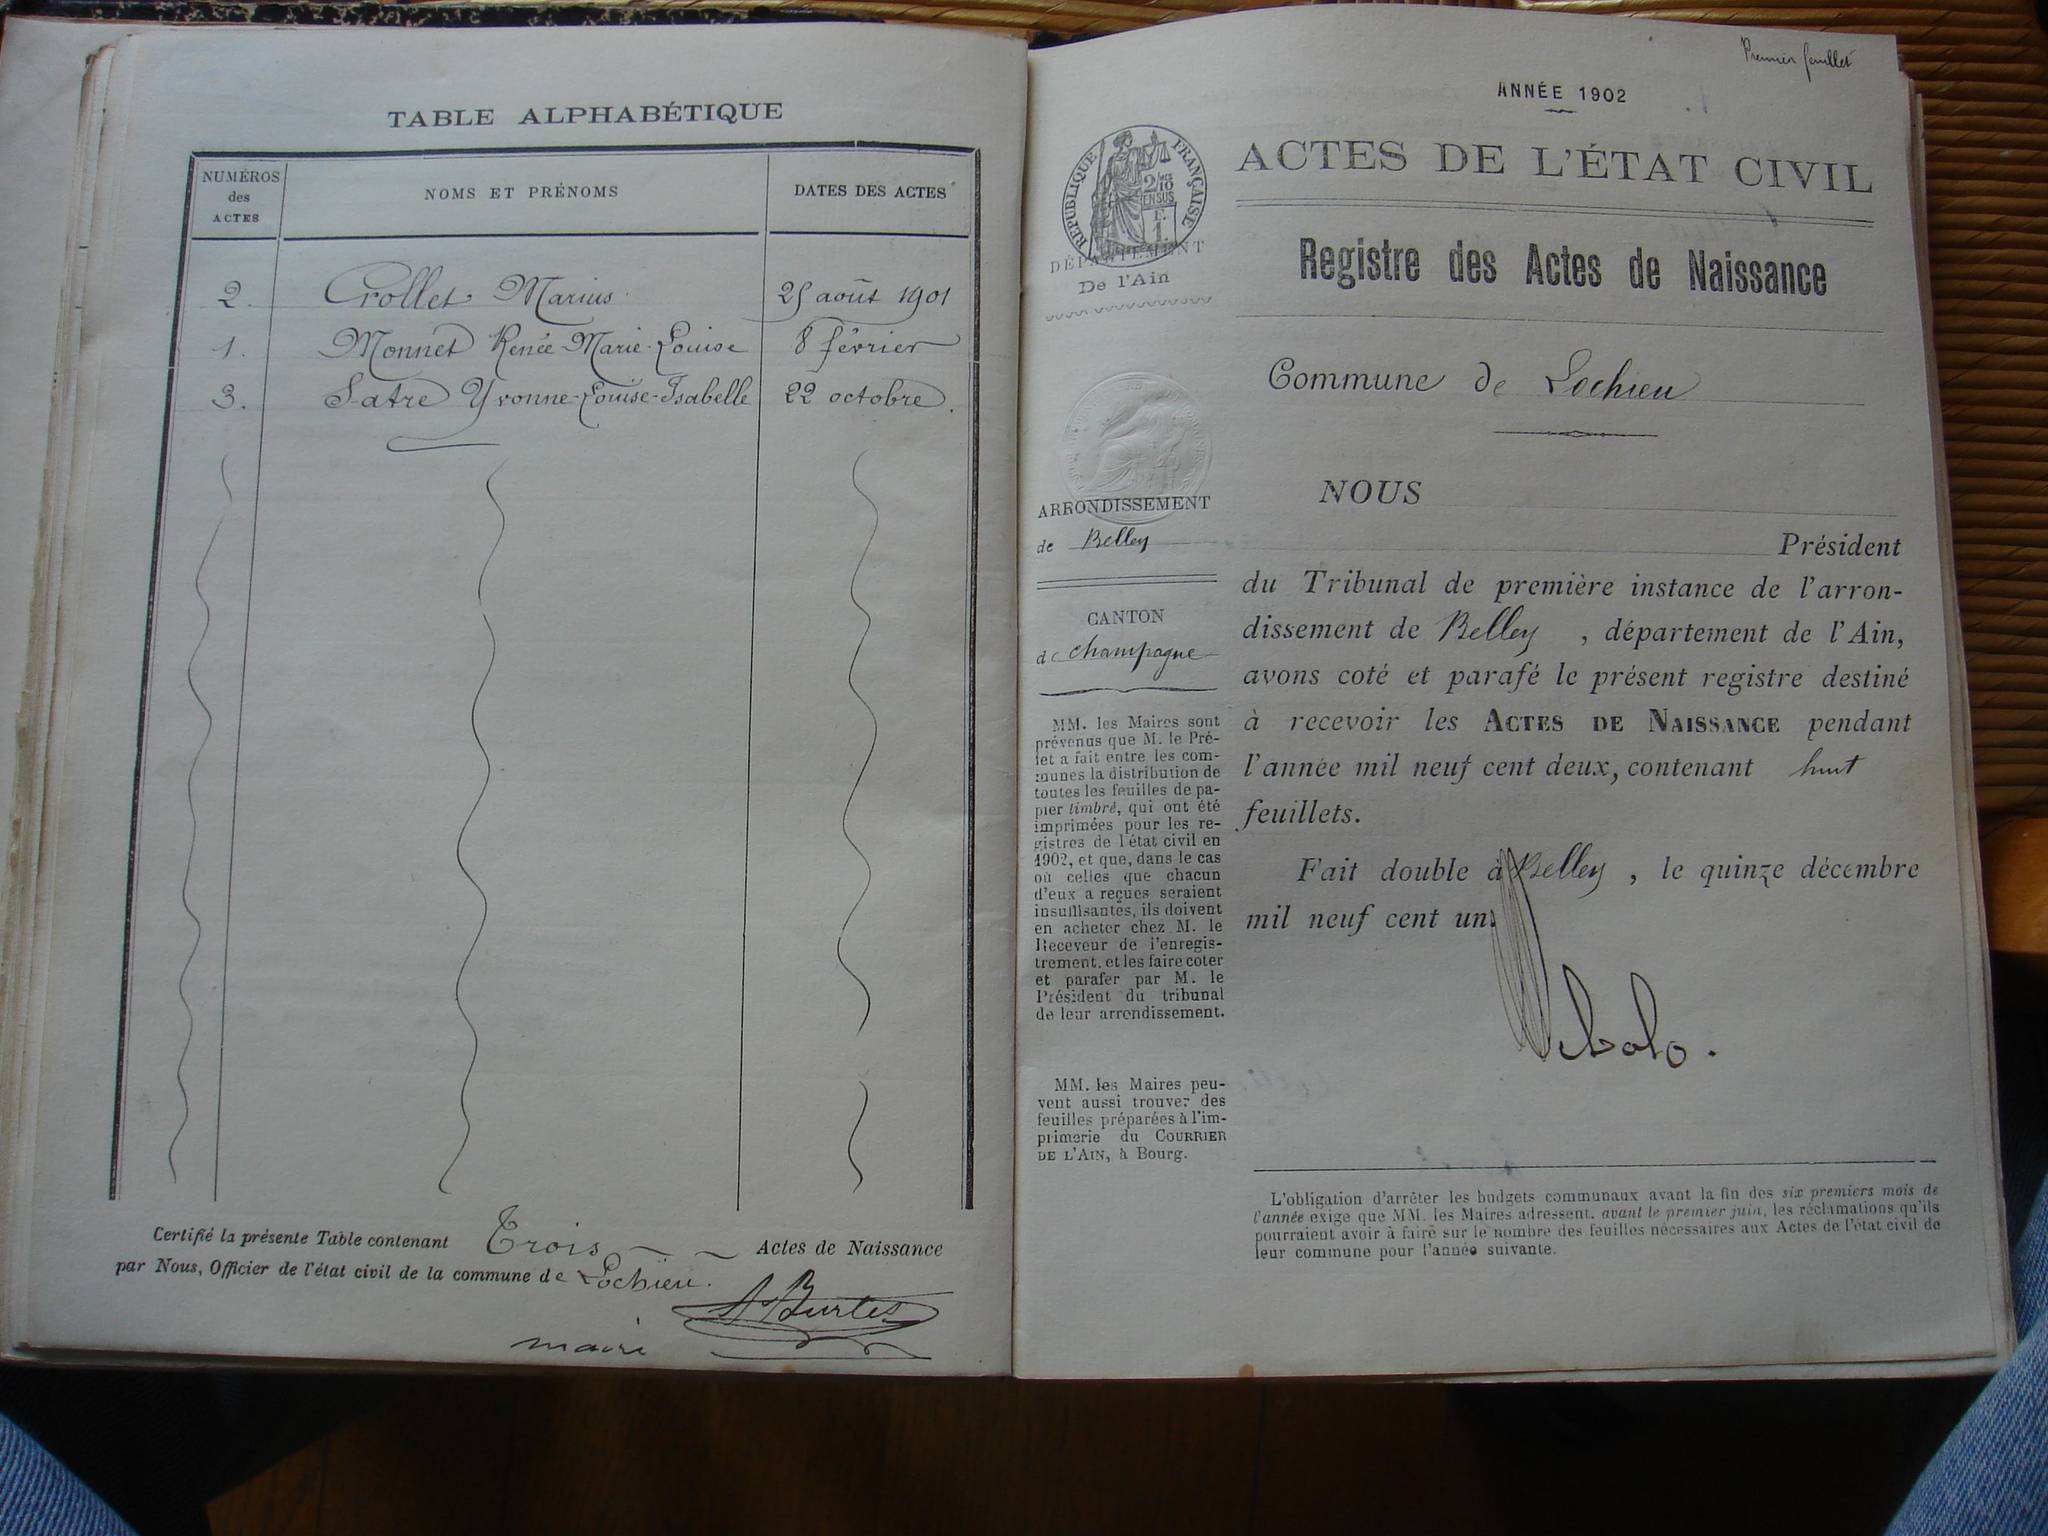 TABLE ALPHABÉTIQUE
NUMÉROS des ACTES
NOMS ET PRÉNOMS
DATES DES ACTES
2. Crollet Marius 25 août 1901
1. Monnet Renée-Marie-Louise 8 février
3. Satre Yvonne-Louise-Isabelle 22 octobre.
Certifié la présente Table contenant Trois Actes de Naissance
par Nous, Officier de l'état civil de la commune de Lochieu.
maire
Premier feuillet
ANNÉE 1902
ACTES DE L'ÉTAT CIVIL
RÉPUBLIQUE FRANÇAISE
2/10 EN SUS
F. 1.
DÉPARTEMENT
De l'Ain
Registre des Actes de Naissance
Commune de Lochieu
ARRONDISSEMENT
de Belley
CANTON
de Champagne
MM. les Maires sont
prévenus que M. le Pré-
fet a fait entre les com-
munes la distribution de
toutes les feuilles de pa-
pier timbré, qui ont été
imprimées pour les re-
gistres de l'état civil en
1902, et que, dans le cas
où celles que chacun
d'eux a reçues seraient
insuffisantes, ils doivent
en acheter chez M. le
Receveur de l'enregis-
trement, et les faire coter
et parafer par M. le
Président du tribunal
de leur arrondissement.
MM. les Maires peu-
vent aussi trouver des
feuilles préparées à l'im-
primerie du COURRIER
DE L'AIN, à Bourg.
NOUS
Président
du Tribunal de première instance de l'arron-
dissement de Belley, département de l'Ain,
avons coté et parafé le présent registre destiné
à recevoir les ACTES DE NAISSANCE pendant
l'année mil neuf cent deux, contenant huit
feuillets.
Fait double à Belley, le quinze décembre
mil neuf cent un.
L'obligation d'arrêter les budgets communaux avant la fin des six premiers mois de
l'année exige que MM. les Maires adressent, avant le premier juin, les réclamations qu'ils
pourraient avoir à faire sur le nombre des feuilles nécessaires aux Actes de l'état civil de
leur commune pour l'année suivante.